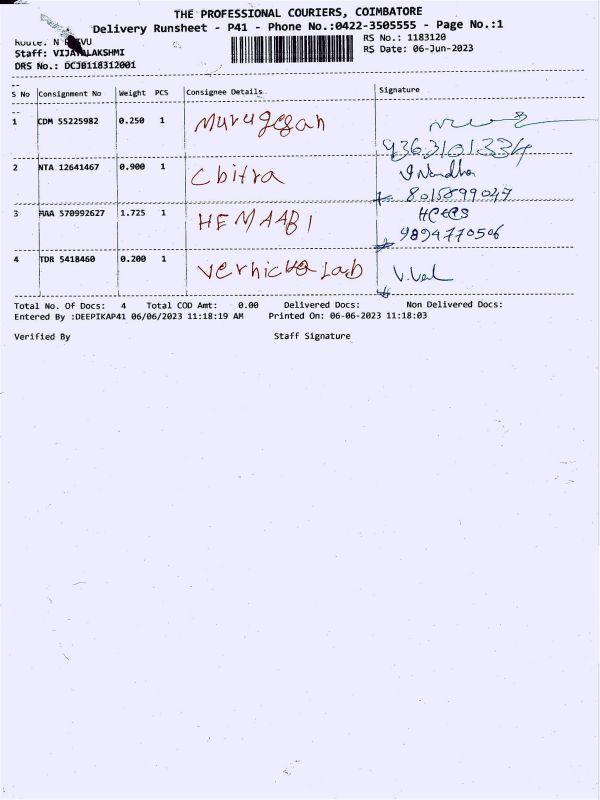 THE PROFESSIONAL COURIERS, COIMBATORE
Delivery Runsheet - P41 - Phone No.:0422-3505555 - Page No.:1
Route: N
RS No.: 1183120
Staff: VIJAYALAKSHMI
RS Date: 06-Jun-2023
DRS No.: DCJB118312001
S No Consignment No Weight PCS Consignee Details Signature
1 CDM 55225982 0.250 1 Murugesan
9363101334
2 NTA 12641467 0.900 1 Chitra
8015899047
3 MAA 570992627 1.725 1 HEMAABI
9894770506
4 TDR 5418460 0.200 1 Lab V.Vel
Total No. Of Docs: 4 Total COD Amt: 0.00 Delivered Docs: Non Delivered Docs:
Entered By :DEEPIKAP41 06/06/2023 11:18:19 AM Printed On: 06-06-2023 11:18:03
Verified By Staff Signature